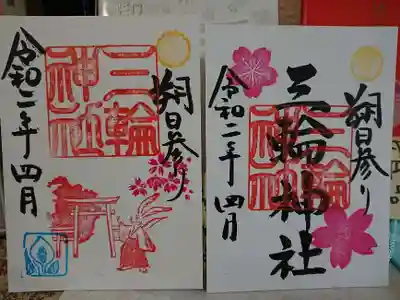 朔日参り
三輪神社
令和二年四月
朔日参り
三輪神社
三輪神社
令和二年四月